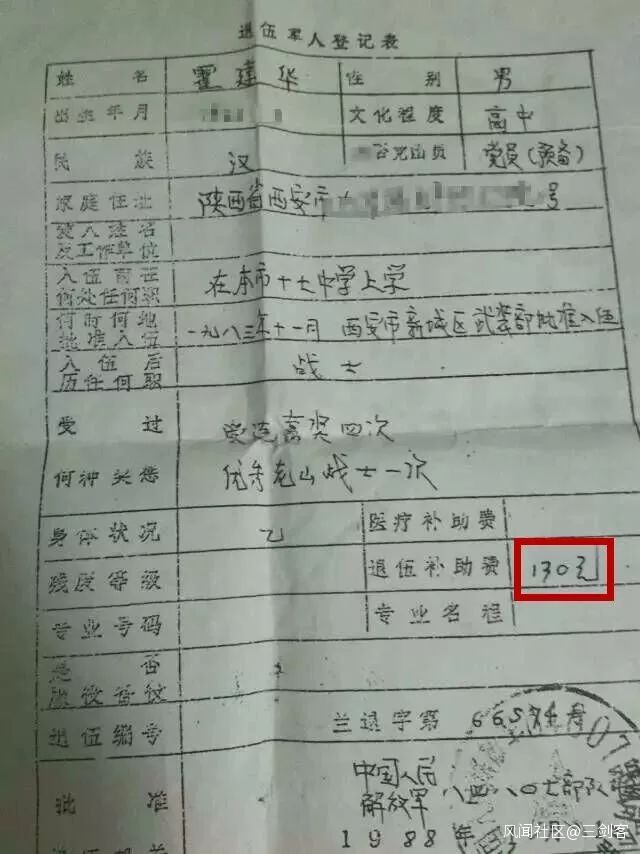 退伍军人登记表
姓名 霍建华 性别 男
出生年月 文化程度 高中
民族 汉 党员(预备)
家庭住址 陕西省西安市 号
及工作单位
入伍前在何处任何职 在本市十七中学上学
何时何地批准入伍 一九八三年十一月 西安市新城区武装部批准入伍
入伍后历任何职 战士
受过何种奖惩 受连嘉奖四次
优秀老山战士一次
身体状况 乙 医疗补助费
残废等级 退伍补助费 130元
专业号码 专业名称
是否
退伍编号 兰退字第 665
批准 中国人民解放军 部队
1988年
风闻社区@三剑客